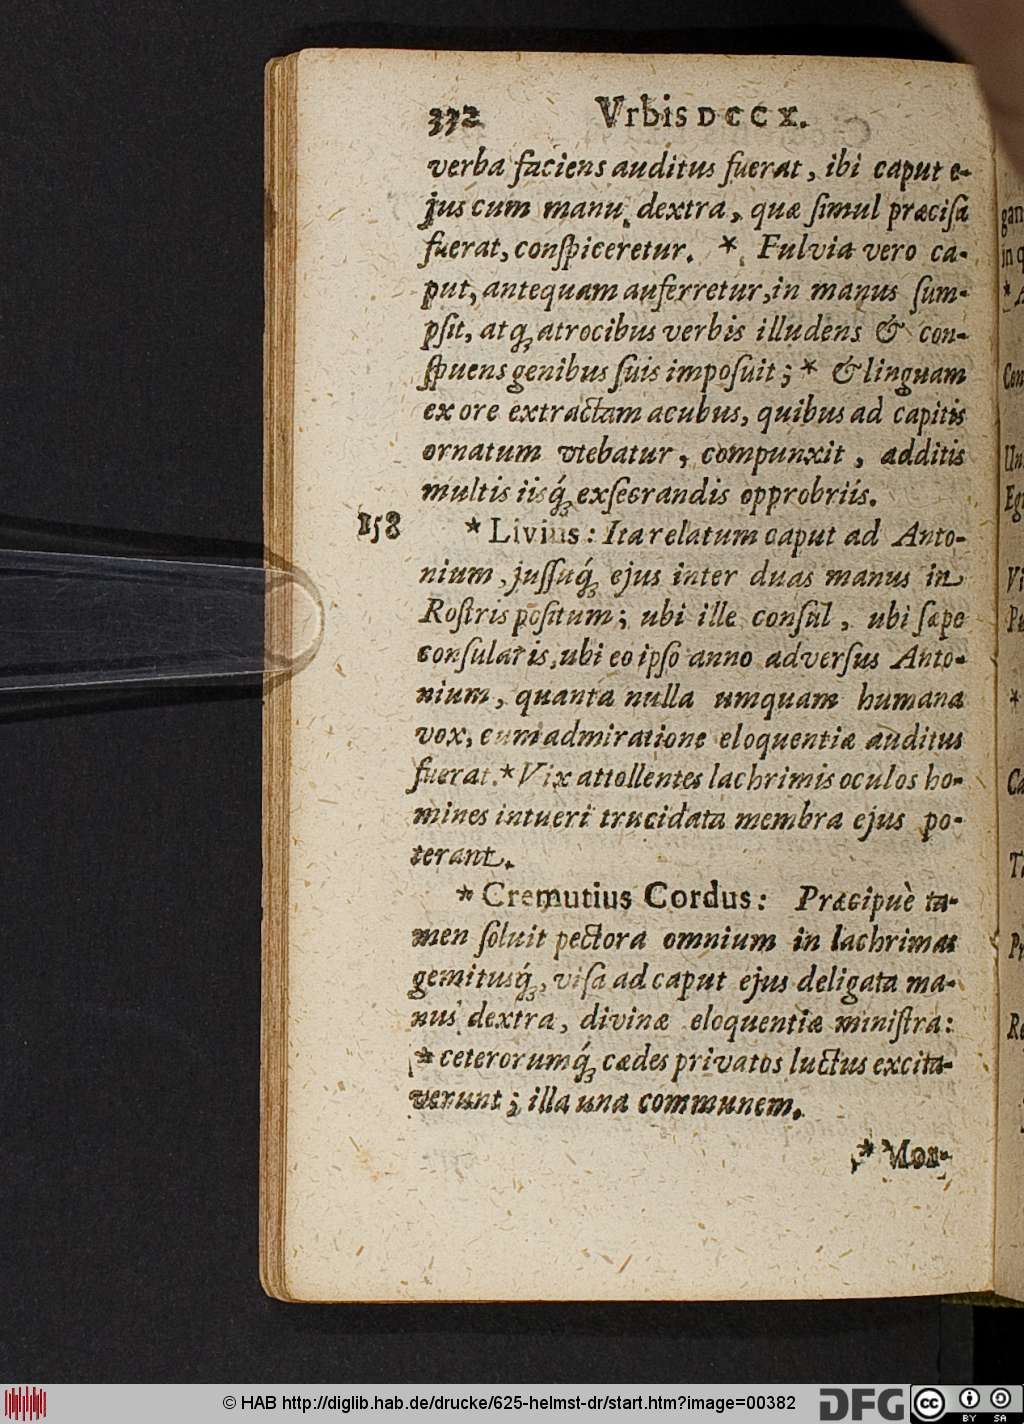 332 Vrbis DCCX.
verba faciens auditus fuerat, ibi caput e-
jus cum manu dextra, quæ ſimul præciſa
fuerat, conſpiceretur. * Fulvia vero ca-
put, antequam auferretur, in manus ſum-
pſit, atq; atrocibus verbis illudens & con-
ſpuens genibus ſuis impoſuit; * & linguam
ex ore extractam acubus, quibus ad capitis
ornatum vtebatur, compunxit, additis
multis iisq́; exſecrandis opprobriis.
158 * Livius: Ita relatum caput ad Anto-
nium, juſſuq́; ejus inter duas manus in
Roſtris poſitum; ubi ille conſul, ubi ſæpe
conſularis, ubi eo ipſo anno adverſus Anto-
nium, quanta nulla umquam humana
vox, cum admiratione eloquentiæ auditus
fuerat. * Vix attollentes lachrimis oculos ho-
mines intueri trucidata membra ejus po-
terant.
* Cremutius Cordus: Præcipuè ta-
men ſoluit pectora omnium in lachrimas
gemitusq́;, viſa ad caput ejus deligata ma-
nus dextra, divinæ eloquentiæ miniſtra:
* ceterorumq́; cædes privatos luctus excita-
verunt; illa una communem.
* Mor-
© HAB http://diglib.hab.de/drucke/625-helmst-dr/start.htm?image=00382 DFG cc BY SA